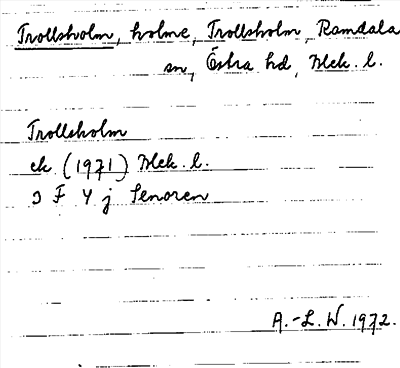 Trollsholm, holme, Trollsholm, Ramdala
sn, Östra hd, Blek. l.
Trollsholm
ek (1971) Blek. l.
3 F 4 j Senoren
A.-L. W. 1972.